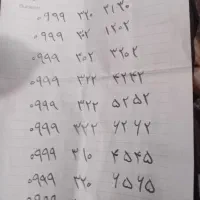 ۰۹۹۹ ۳۲۰ ۲۱۲۰
۰۹۹۹ ۳۰۲ ۱۲۰۲
۰۹۹۹ ۳۰۲ ۳۲۰۲
۰۹۹۹ ۳۲۲ ۴۲۴۲
۰۹۹۹ ۳۲۲ ۵۲۵۲
۰۹۹۹ ۳۲۲ ۶۲۶۲
۰۹۹۹ ۳۱۰ ۴۵۴۵
۰۹۹۹ ۳۲۰ ۶۵۶۵